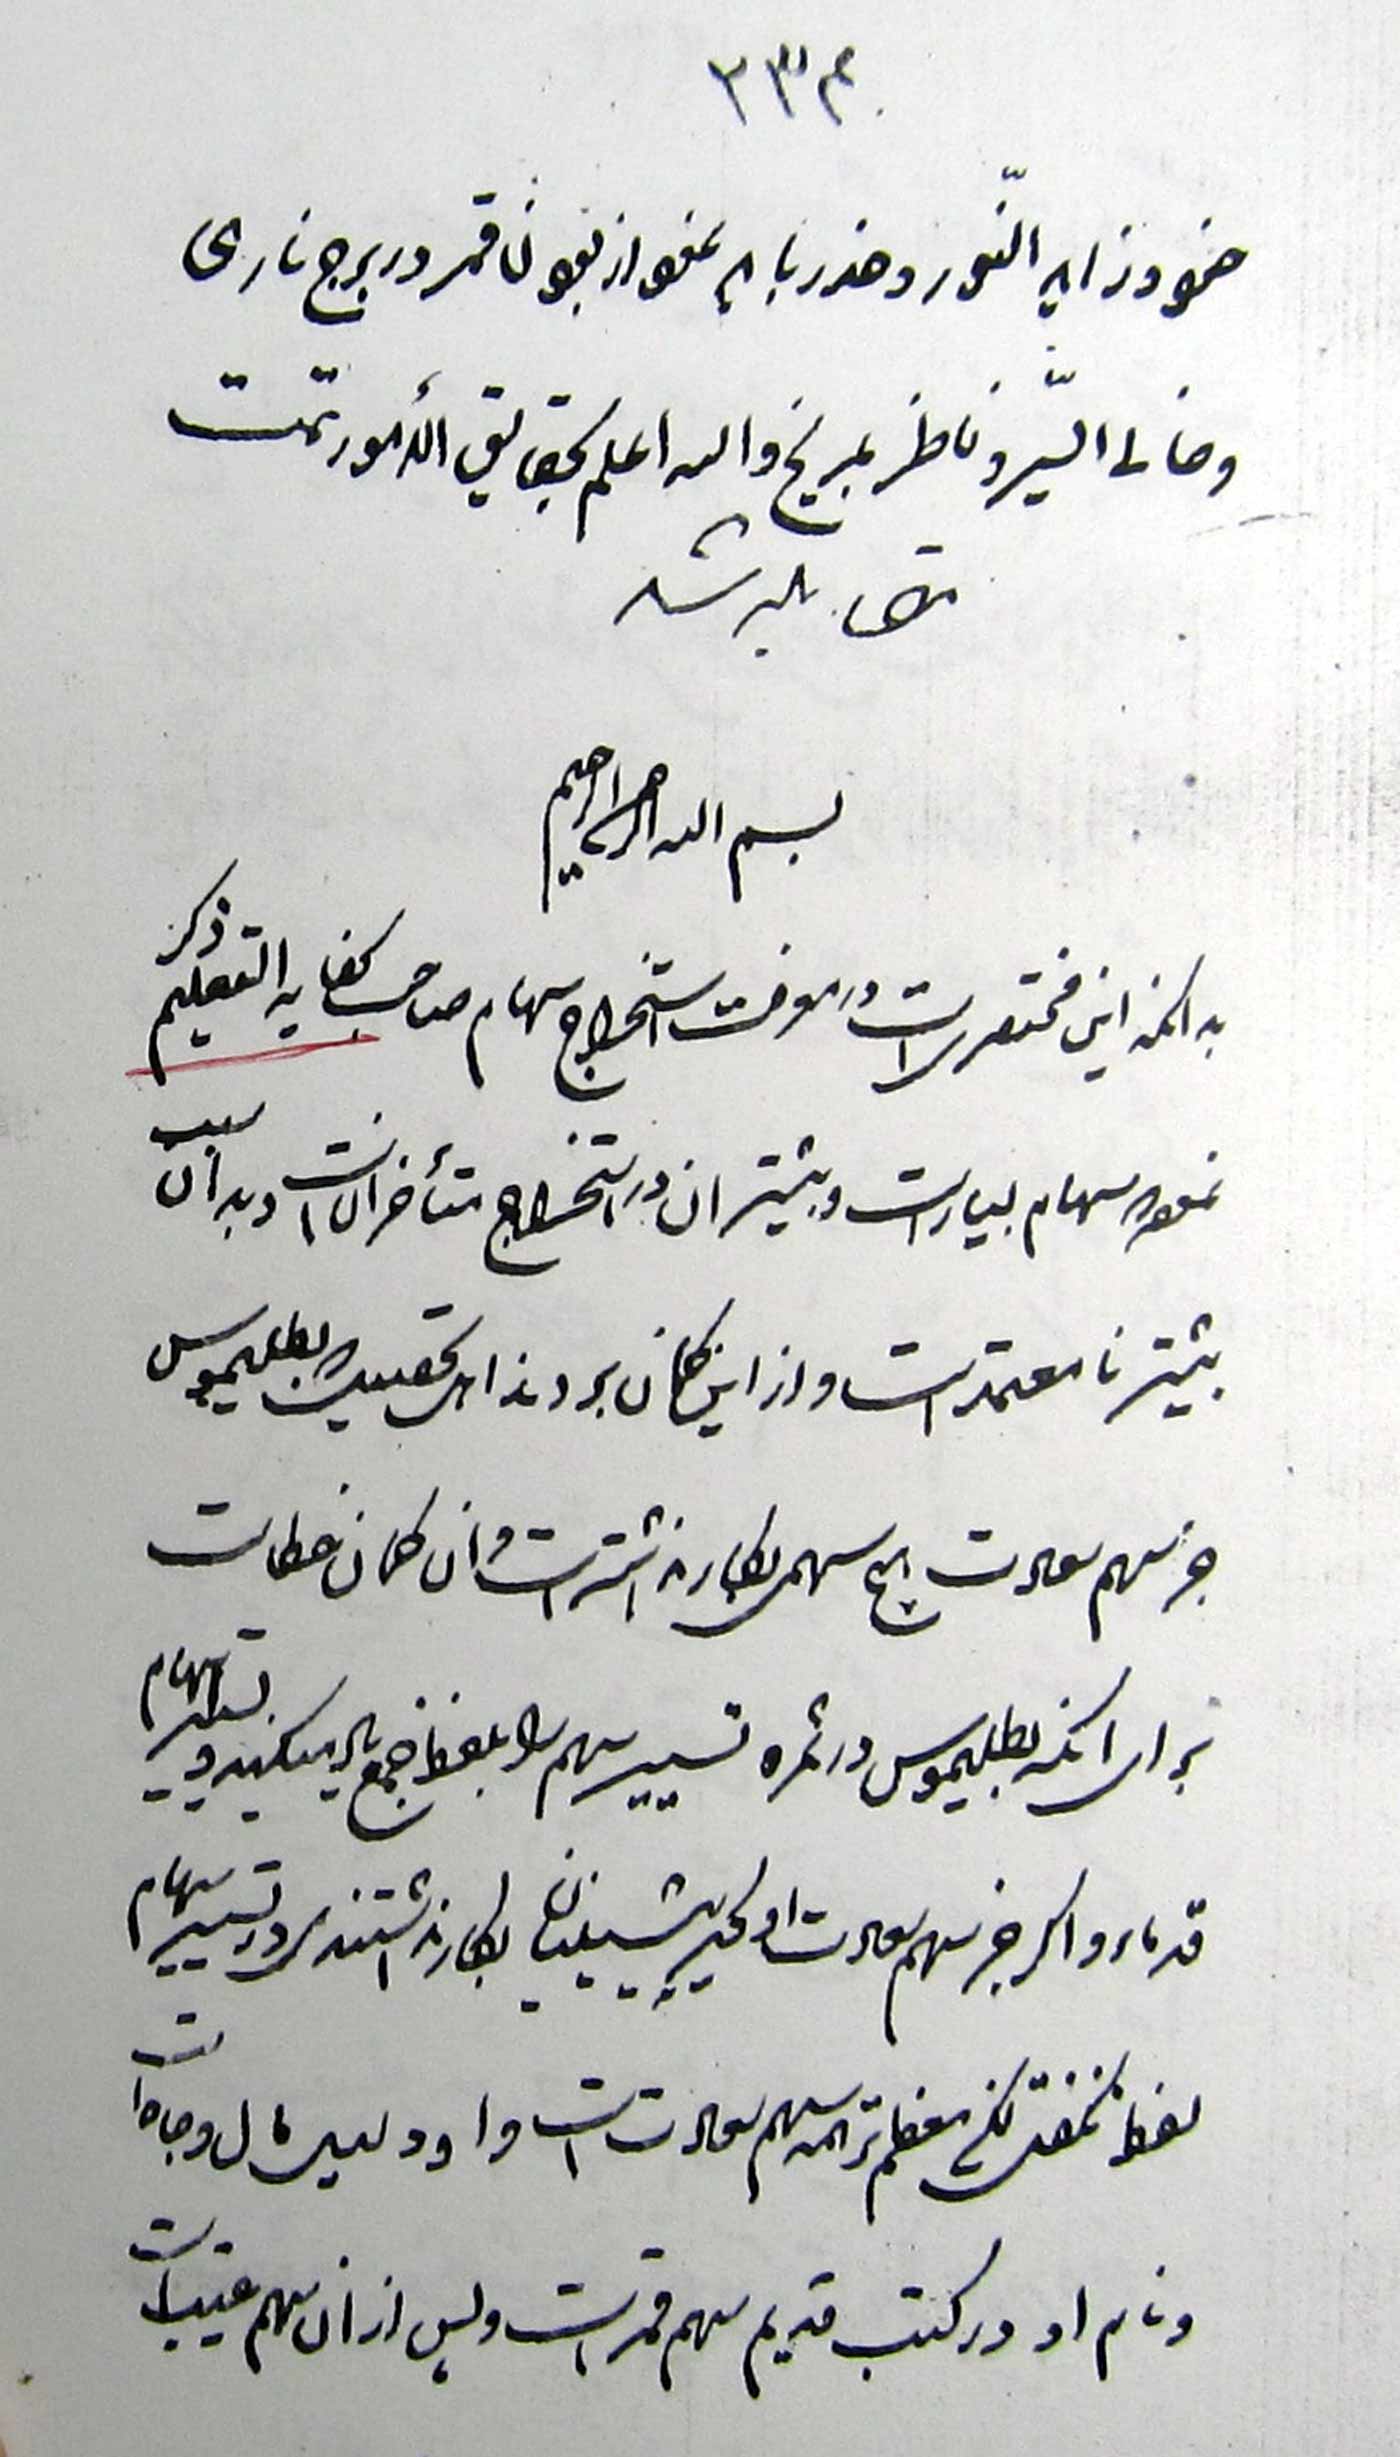 ۲۳۴
ضوء و زاید النّور و حذر باید نمود از بودن قمر در برج ناری
و خالی السّیر و ناظر بمریخ والله اعلم بحقایق الأمور تمت
بسم الله الرحمن الرحیم
بدانکه این مختصریست در معرفت استخراج سهام صاحب کفایه التعلیم ذکر
نموده سهام بسیارست و بیشتر آن در استخراج متأخرانست و بدان سبب
بیشتر نامعتمدست و از این گمان بردند اهل تحقیق که بطلیموس
جز سهم سعادت هیچ سهمی بکار نداشته است و آن گمان خطاست
برای آنکه بطلیموس در ثمره تسییر سهم را بلفظ جمع یاد میکند و تسییر سهام
قدماء و اگر جز سهم سعادت او بجز پیشینیان بکار نداشتندی در تسییر سهام
لفظ نگفتی لکن معظم‌ترین سهم سعادت است و او دلیل مال و جاه است
و نام او در کتب قدیم سهم قمر است و پس از آن سهم غیبست